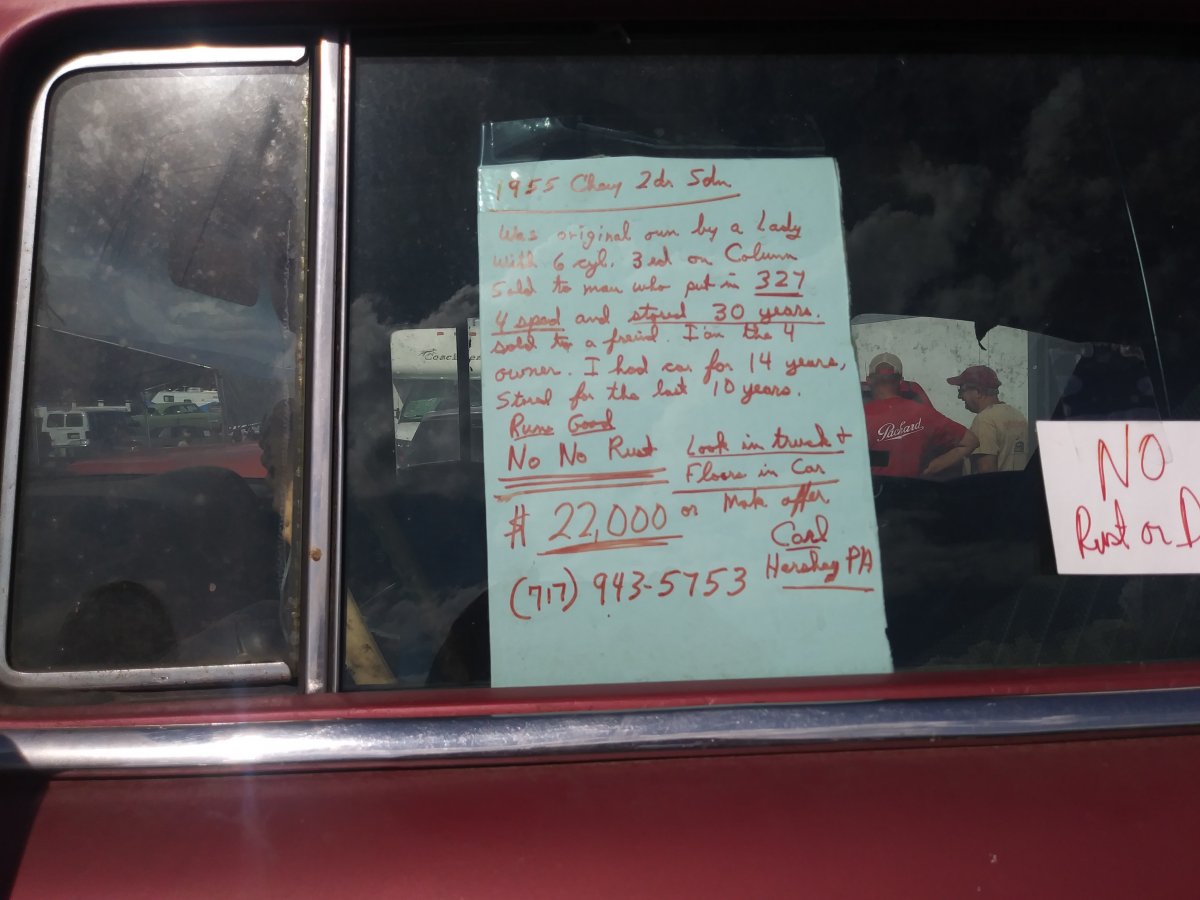 1955 Chevy 2dr Sdn
Was original own by a Lady
With 6 cyl. 3 sd on Column
Sold to man who put in 327
4 speed and stored 30 years.
sold to a freind. I am the 4
owner. I had car for 14 years,
Stored for the last 10 years.
Runs Good
No No Rust Look in trunk +
Floors in Car
$ 22,000 or Make offer
Carl
(717) 943-5753 Hershey PA
NO
Rust or
Packard